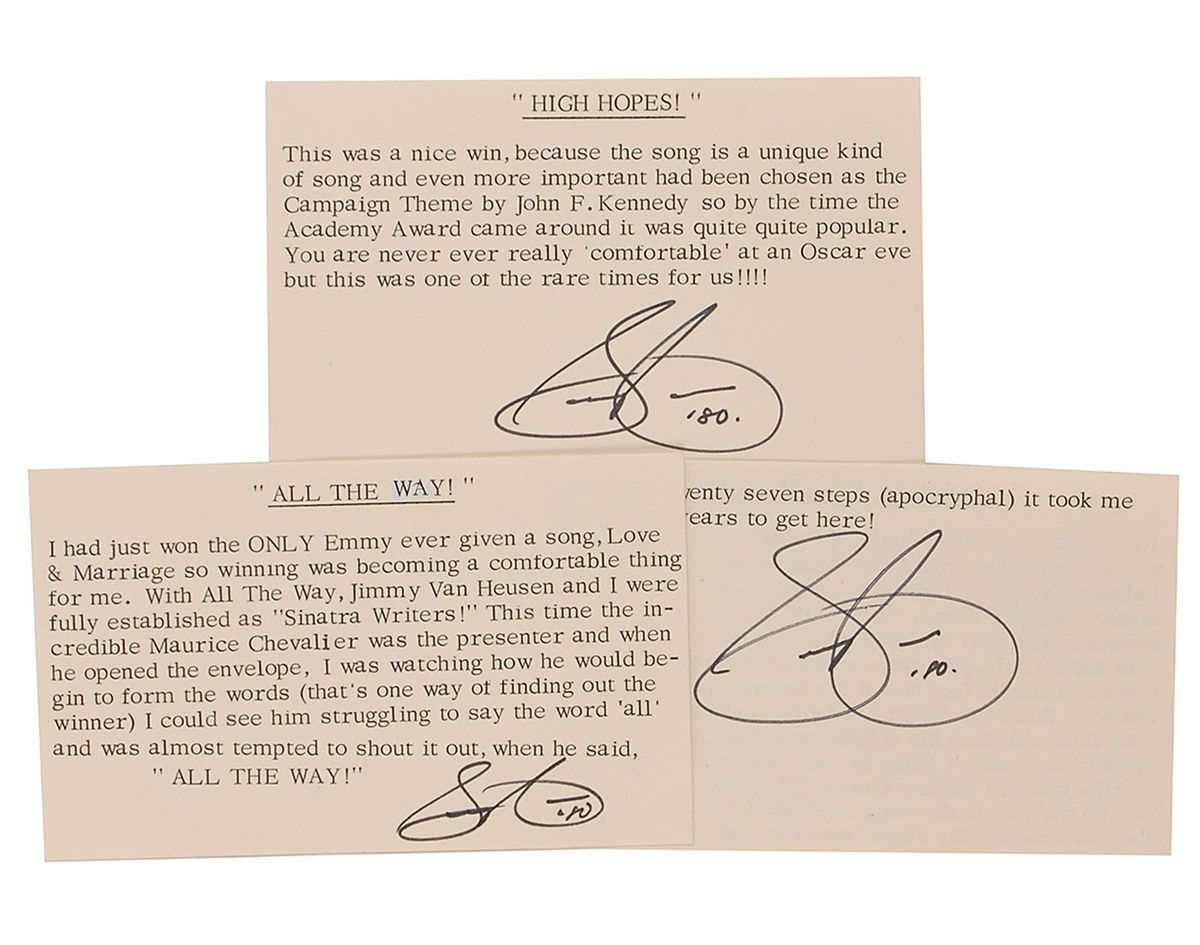 " HIGH HOPES! "
This was a nice win, because the song is a unique kind
of song and even more important had been chosen as the
Campaign Theme by John F. Kennedy so by the time the
Academy Award came around it was quite quite popular.
You are never ever really 'comfortable' at an Oscar eve
but this was one of the rare times for us!!!!
'80.
" ALL THE WAY! "
I had just won the ONLY Emmy ever given a song, Love
& Marriage so winning was becoming a comfortable thing
for me. With All The Way, Jimmy Van Heusen and I were
fully established as "Sinatra Writers!" This time the in-
credible Maurice Chevalier was the presenter and when
he opened the envelope, I was watching how he would be-
gin to form the words (that's one way of finding out the
winner) I could see him struggling to say the word 'all'
and was almost tempted to shout it out, when he said,
" ALL THE WAY!"
'80
venty seven steps (apocryphal) it took me
ears to get here!
'80.